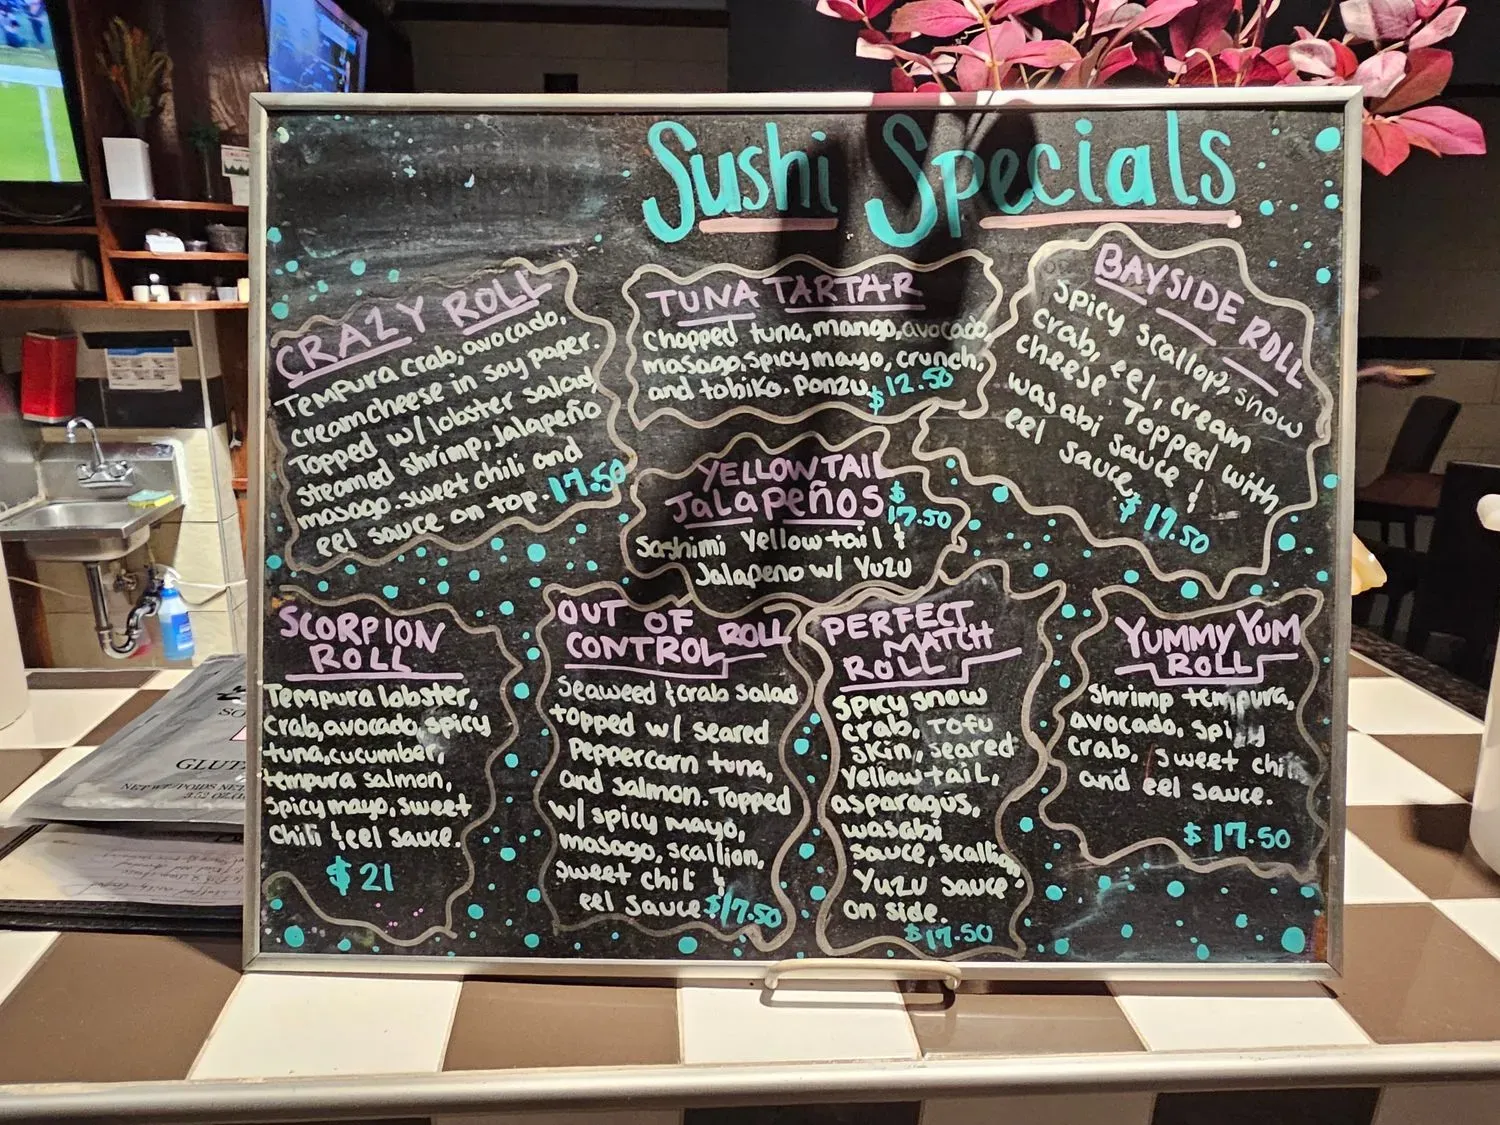 Sushi Specials
CRAZY ROLL
Tempura crab, avocado,
creamcheese in soy paper.
Topped w/ lobster salad,
steamed shrimp, Jalapeño
masago. sweet chili and
eel sauce on top. 17.50
TUNA TARTAR
Chopped tuna, mango, avocado,
masago, spicy mayo, crunch,
and tobiko. Ponzu $12.50
BAYSIDE ROLL
Spicy scallop, snow
crab, eel, cream
cheese. Topped with
wasabi sauce &
eel sauce.
$17.50
YELLOWTAIL
JalapeñOS $17.50
Sashimi Yellowtail &
Jalapeno w/ Yuzu
SCORPION
ROLL
Tempura lobster,
crab, avocado, spicy
tuna, cucumber,
tempura salmon,
spicy mayo, sweet
chili & eel sauce.
$21
OUT OF
CONTROL ROLL
Seaweed & crab salad
topped w/ seared
peppercorn tuna,
and salmon. Topped
w/ spicy mayo,
masago, scallion,
sweet chili &
eel sauce $17.50
PERFECT
MATCH
ROLL
Spicy snow
crab, TOFU
skin, seared
Yellowtail,
asparagus,
wasabi
sauce, scallion
Yuzu sauce
on side.
$17.50
YUMMY YUM
ROLL
Shrimp tempura,
avocado, spicy
crab, sweet chili
and eel sauce.
$17.50